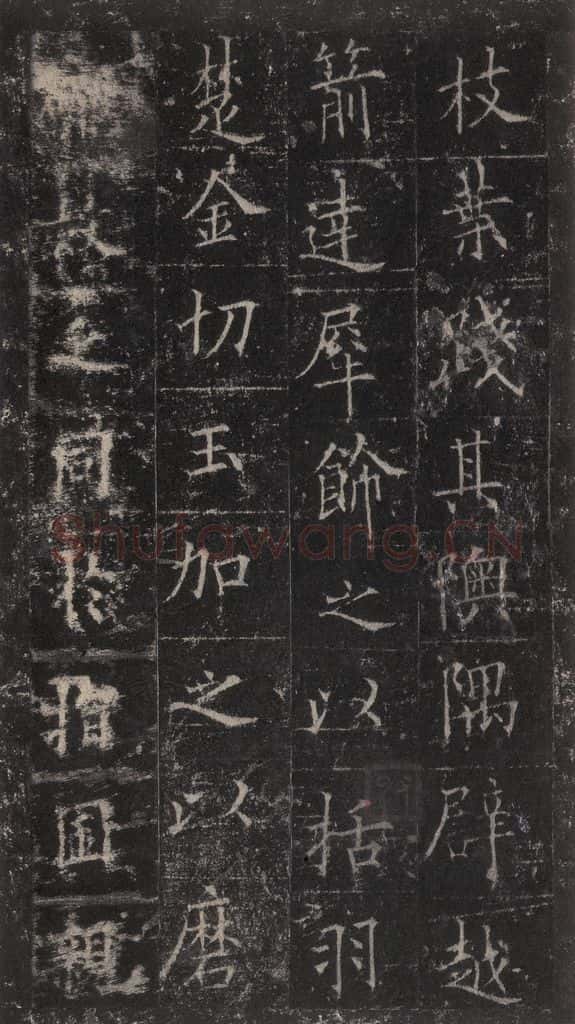 枝葉踐其隩隅辟越
箭達犀飾之以括羽
楚金切玉加之以磨
之同於指囷親
Shufawang.CN